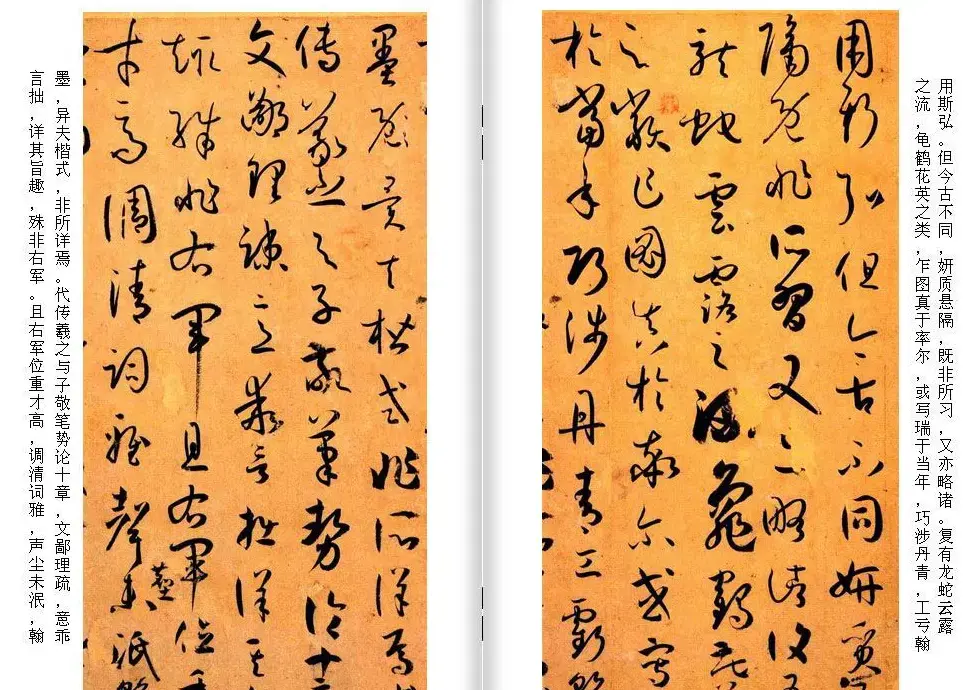 用斯弘。但今古不同,妍质悬隔,既非所习,又亦略诸。复有龙蛇云露
之流,龟鹤花英之类,乍图真于率尔,或写瑞于当年,巧涉丹青,工亏翰
用斯弘但今古不同妍質
隔既非所習又亦略諸復
龍蛇雲露之流龜鶴花
之類乍圖真於率爾或寫
於當年巧涉丹青工虧
墨既異夫楷式非所詳焉
傳羲之與子敬筆勢論十
文鄙理疎意乖言拙詳其
趣殊非右軍且右軍位重
才高調清詞雅聲塵未泯
墨,异夫楷式,非所详焉。代传羲之与子敬笔势论十章,文鄙理疏,意乖
言拙,详其旨趣,殊非右军。且右军位重才高,调清词雅,声尘未泯,翰